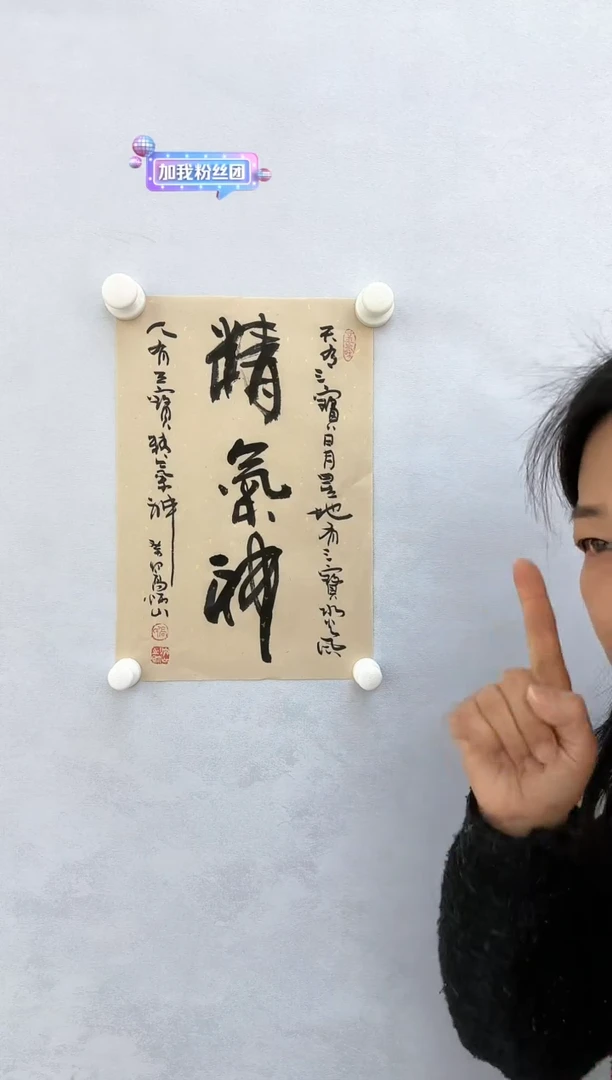 加我粉丝团
天有三寶日月星地有三寶水火風
精氣神
人有三寶精氣神